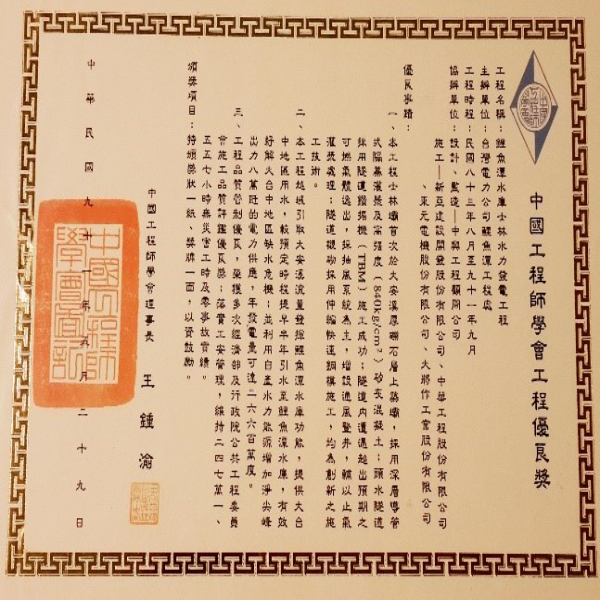 中國工程師學會工程優良獎
工程名稱：鯉魚潭水庫士林水力發電工程
主辦單位：台灣電力公司鯉魚潭工程處
工程時程：民國八十三年八月至九十一年九月
協辦單位：設計、監造—中興工程顧問公司
施工—新亞建設開發股份有限公司、中華工程股份有限公司
、東元電機股份有限公司、大將作工業股份有限公司
優良事蹟：
一、本工程士林壩首次於大安溪厚礫石層上築壩，採用深層導管
式隔幕灌漿及高強度（840kg/cm²）矽灰混凝土；頭水隧道
採用隧道鑽掘機（TBM）施工成功；隧道內遭遇超出預期之
可燃氣體逸出，採抽風系統為主，增設通風豎井，輔以止氣
灌漿處理；隧道襯砌採用伸縮快速鋼模施工，均為創新之施
工技術。
二、本工程越域引取大安溪流量發揮鯉魚潭水庫功能，提供大台
中地區用水，較預定時程提早半年引水至鯉魚潭水庫，有效
紓解大台中地區缺水危機；並利用自產水力能源增加淨尖峰
出力八萬瓩的電力供應，年發電量可達二六六百萬度。
三、工程品質管制優良，榮獲多次經濟部及行政院公共工程委員
會施工品質評鑑優良獎；落實工安管理，維持二四七萬一、
五五七小時無災害工時及零事故實績。
頒獎項目：持頒獎狀一紙、獎牌一面，以資鼓勵。
中國工程師學會理事長 王鍾渝
中國工程師學會圖記
中華民國九十一年五月二十九日